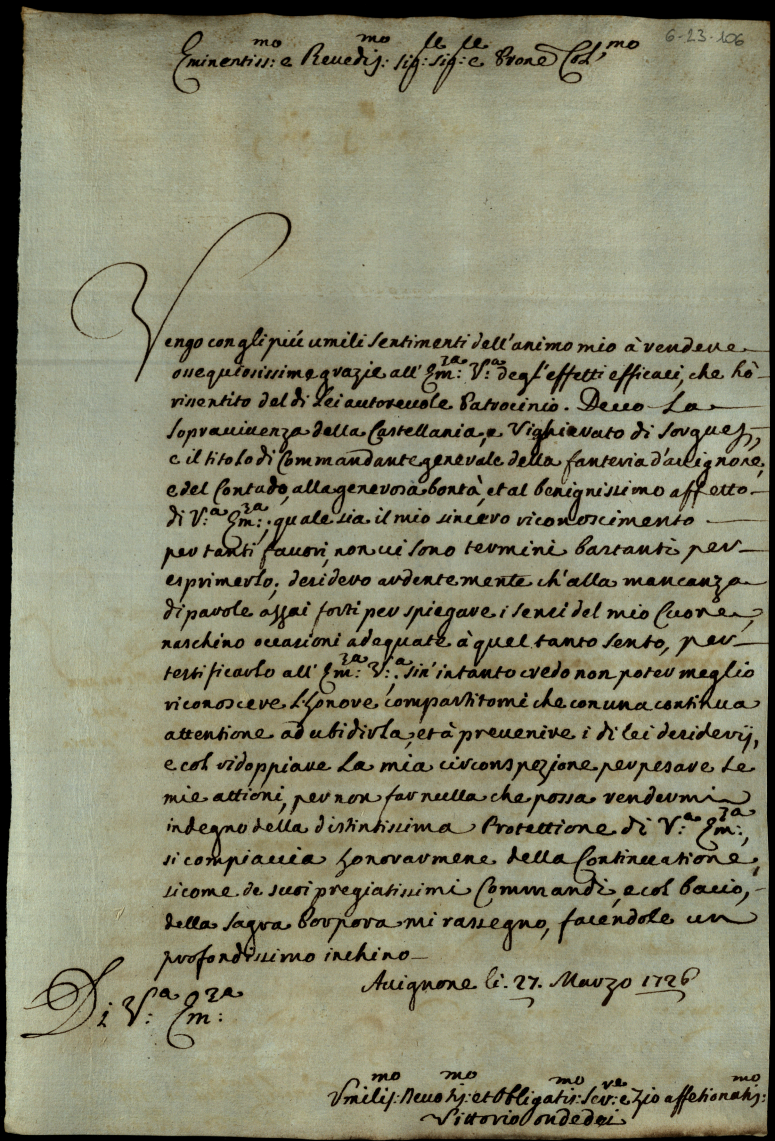 6-23-106
Eminentiss:mo e Reuedis:mo sig:re sig:re e Prone Col:mo
Vengo con gli più umili sentimenti dell'animo mio à rendere
ossequiosissime grazie all'Em:za V:a degl'effetti efficaci, che hò
rissentito del di Lei autoreuole Patrocinio. Deuo La
soprauiuenza della Castellania, e Vighierato di Sorgues,
e il titolo di Commandante generale della fanteria d'auignone,
e del Contado, alla generosa bontà, et al benignissimo affetto
di V:a Em:za; quale sia il mio sincero riconoscimento
per tanti fauori, non ui sono termini bastanti per
esprimerlo; desidero ardentemente ch'alla mancanza
di parole assai forti per spiegare i sensi del mio Cuore,
naschino occasioni adequate à quel tanto sento, per
testificarlo all'Em:za V:a; sin'intanto credo non poter meglio
riconoscere L'honore compartitomi che con una continua
attentione ad ubidirla, et à preuenire i di lei desiderij,
e col ridoppiare La mia circonspezione per pesare Le
mie attioni, per non far nulla che possa rendermi
indegno della distintissima Protettione di V:a Em:za,
si compiaccia honorarmene della Continuatione,
sicome de suoi pregiatissimi Commandi, e col bacio,
della sagra Porpora mi rassegno, facendole un
profondissimo inchino
Auignone li. 27. Marzo 1726
Di V:a Em:za
Vmilis:mo Deuotis:mo et Obligatis:mo Ser:re e Zio affetionatis:mo
Vittorio Ondedei